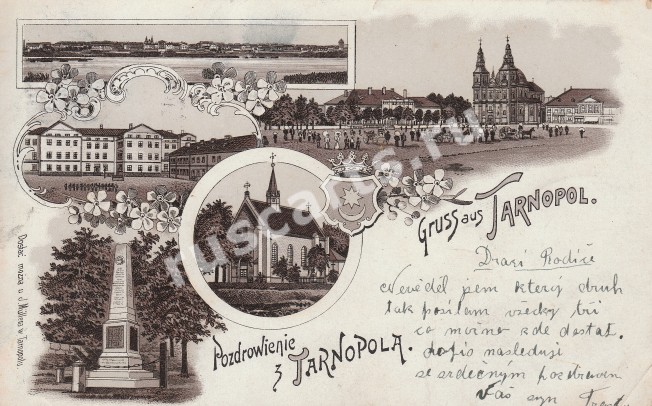 Gruss aus TARNOPOL.
Pozdrowienie
z TARNOPOLA.
Dostać można u J. Müllera w Tarnopolu.
Drazí Rodiče
Nevěděl jsem který druh
tak posílam všecky tři
co možno zde dostat.
dopis následuji
se srdečným pozdravem
Váš syn
ruscards.ru